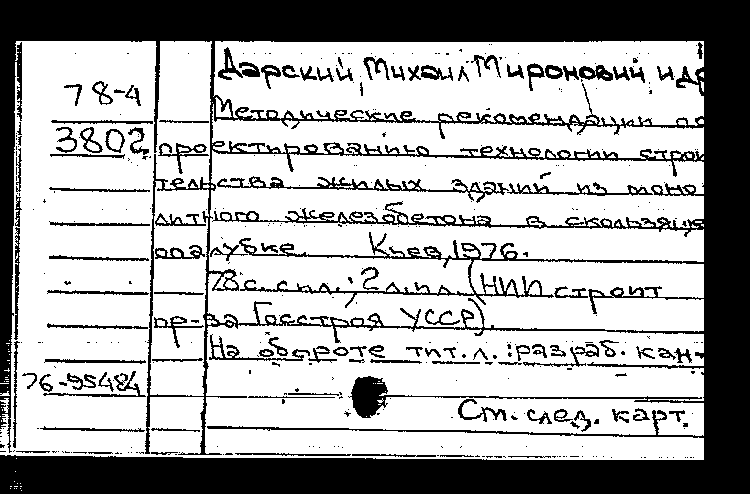 Дарский, Михаил Миронович и др
78-4
Методические рекомендации по
3802
проектированию технологии строи
тельства жилых зданий из моно
литного железобетона в скользяще
опалубке. Киев, 1976.
78 с. с ил.; 2 л. ил. (НИИ строит
пр-ва Госстроя УССР).
На обороте тит. л.: разраб. кан-
76-95484
См. след. карт.